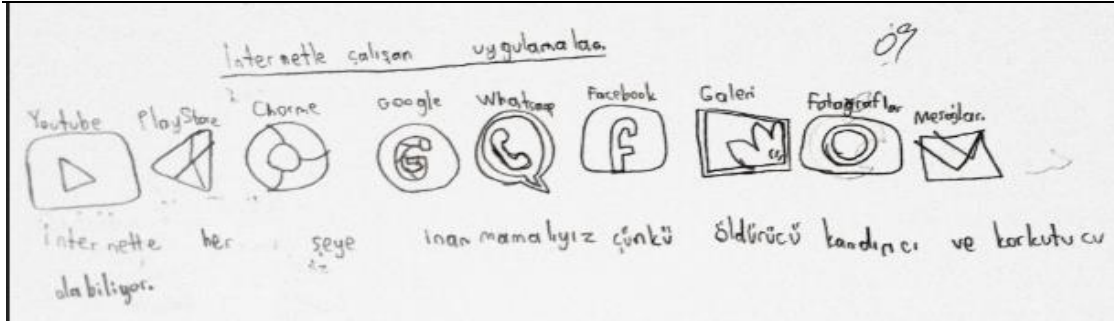 İnternetle çalışan uygulamalar.
Ö9
Youtube PlayStore Chorme Google Whatsaap Facebook Galeri Fotoğraflar Mesajlar.
internette her şeye inanmamalıyız çünkü öldürücü kandırıcı ve korkutucu
olabiliyor.